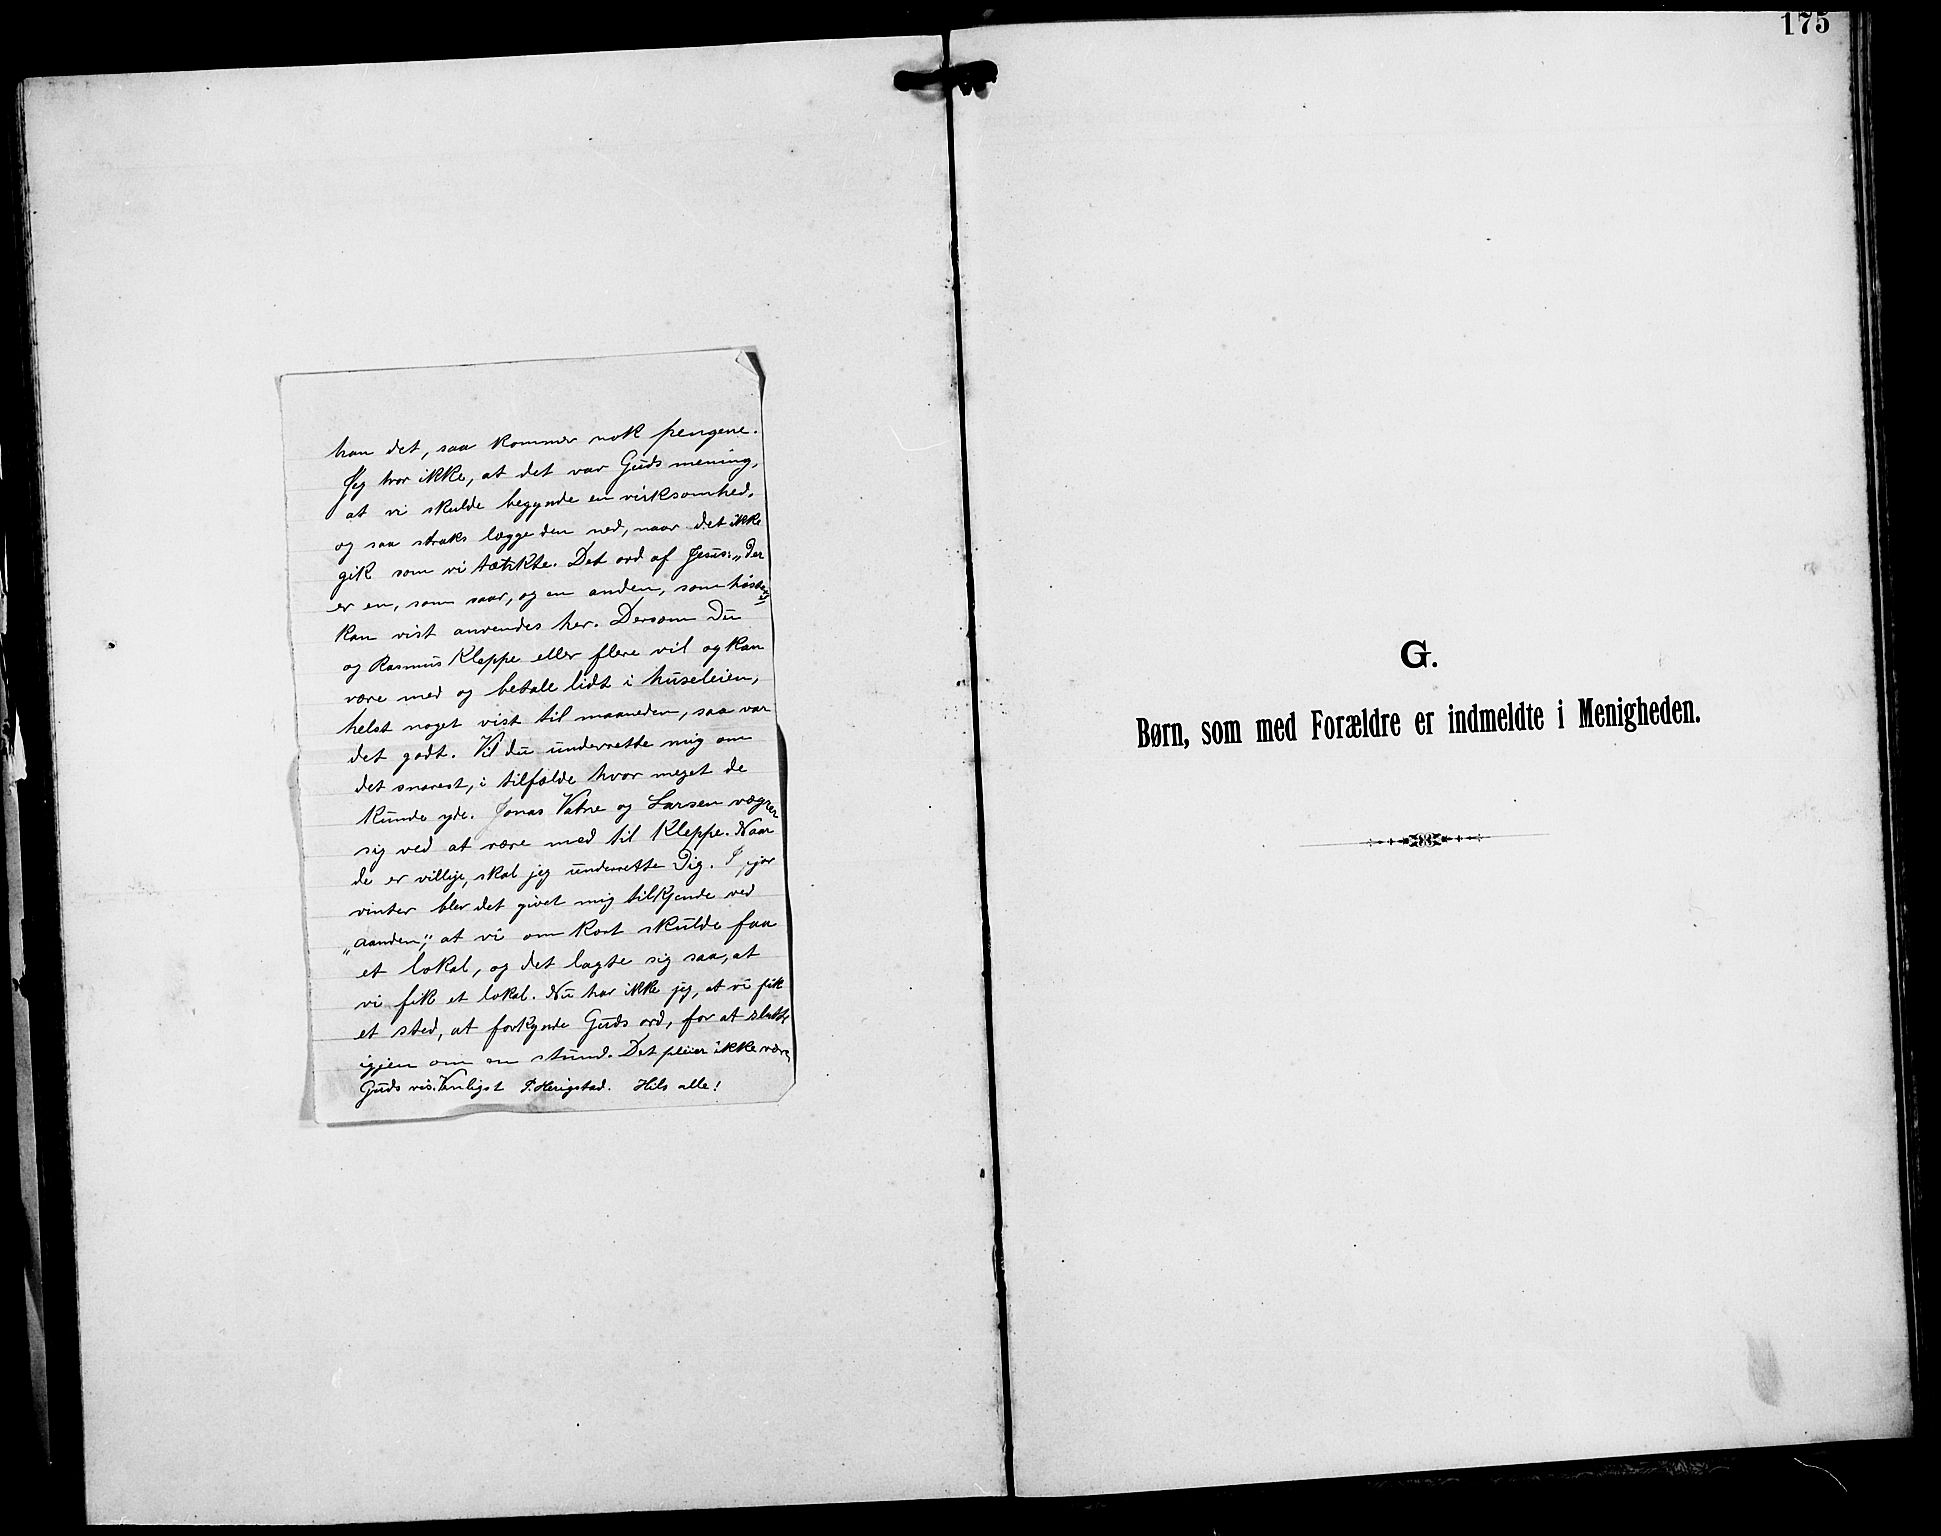 han det, saa kommer nok pengene.
Jeg tror ikke, at det var Guds mening,
at vi skulde begynde en virksomhed,
og saa straks lægge den ned, naar det ikke
gik som vi tætkte. Det ord af Jesus: „Der
er en, som saar, og en anden, som høster"
kan vist anvendes her. Dersom Du
og Rasmus Kleppe eller flere vil og kan
være med og betale lidt i huseleien,
helst noget vist til maaneden, saa var
det godt. Vil du underrette mig om
det snarest, i tilfælde hvor meget de
kunde yde. Jonas Vatne og Larsen vægrer
sig ved at være med til Kleppe. Naar
de er villige, skal jeg underrette Dig. I fjor
vinter blev det givet mig tilkjende ved
„aanden", at vi om kort skulde faa
et lokal, og det lagte sig saa, at
vi fik et lokal. Nu tror ikke jeg, at vi fik
et sted, at forkynde Guds ord, for at slutte
igjen om en stund. Det pleier ikke være
Guds vis. Venligst P. Herigstad. Hils alle!
175
G.
Børn, som med Forældre er indmeldte i Menigheden.